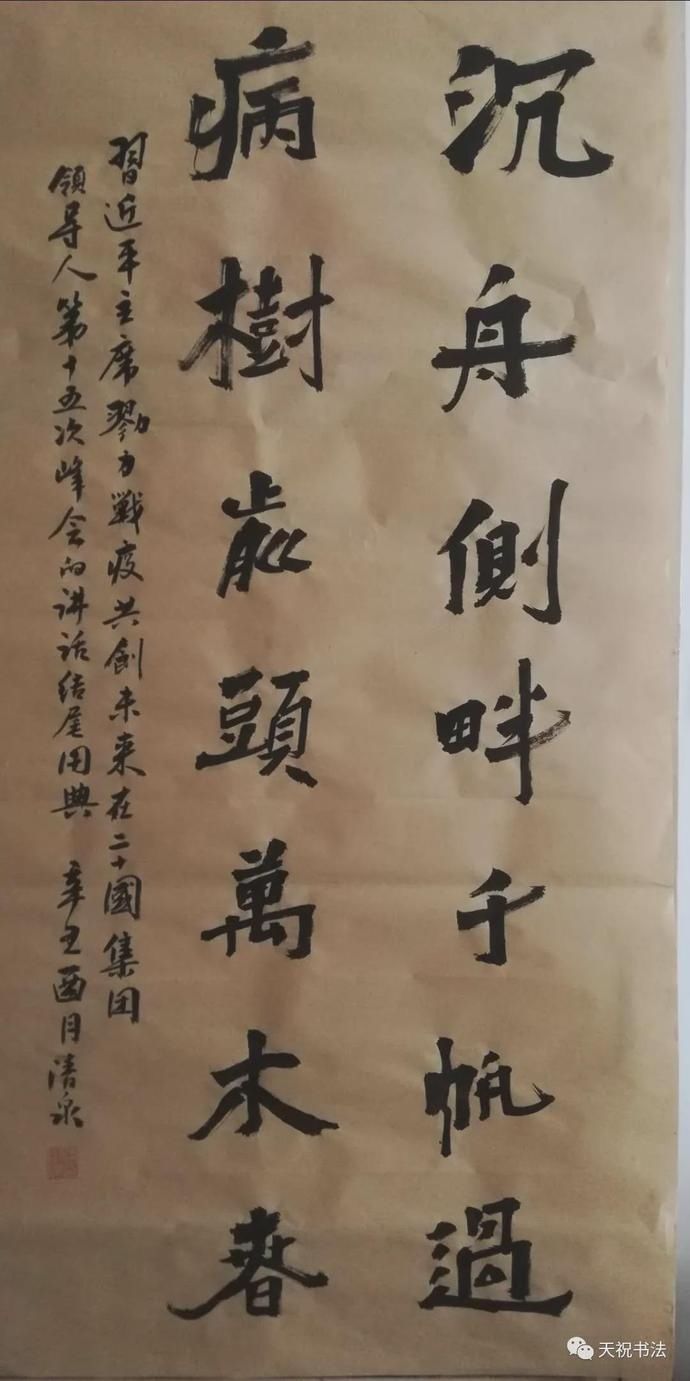 沉舟側畔千帆過
病樹前頭萬木春
習近平主席勠力戰疫共創未来在二十國集团
领导人第十五次峰会的讲话结尾用典 辛丑酉月清泉
天祝书法